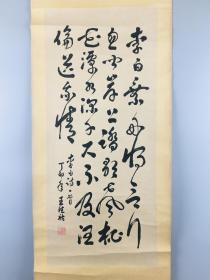 李白乘舟将欲行
忽闻岸上踏歌声桃
花潭水深千尺不及汪
倫送我情
李白诗一首
丁卯年王